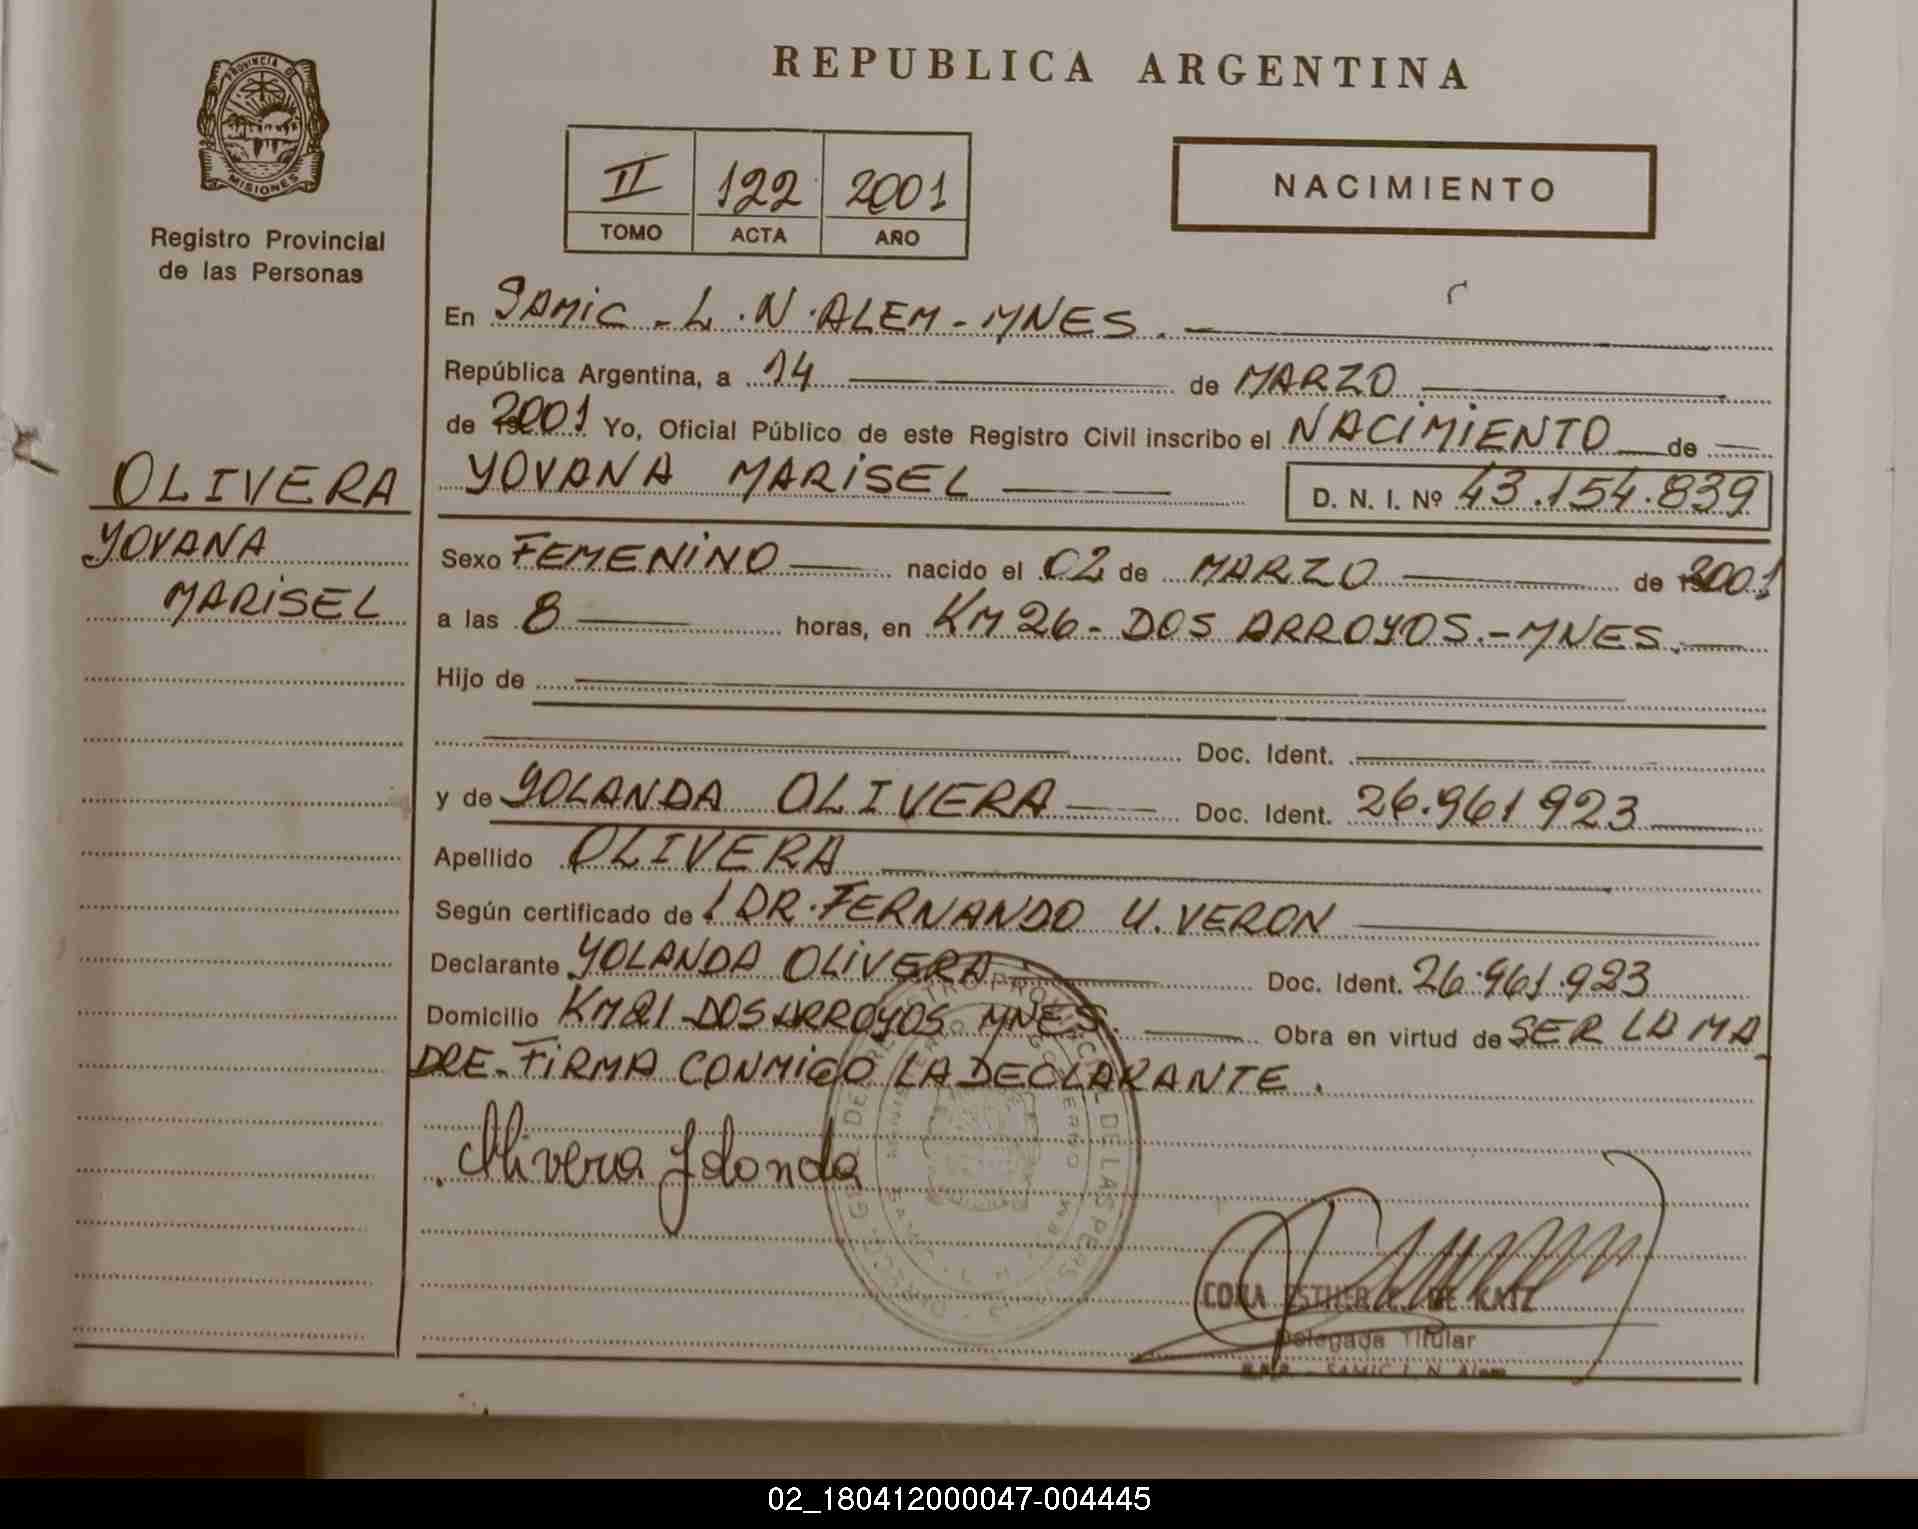 REPUBLICA ARGENTINA
PROVINCIA DE
MISIONES
Registro Provincial
de las Personas
II 122 2001
TOMO ACTA AÑO
NACIMIENTO
En SAMIC - L.N. ALEM - MNES.
República Argentina, a 14 de MARZO
de 2001 Yo, Oficial Público de este Registro Civil inscribo el NACIMIENTO de
YOVANA MARISEL D. N. I. Nº 43.154.839
OLIVERA
YOVANA
MARISEL
Sexo FEMENINO nacido el 02 de MARZO de 2001
a las 8 horas, en KM 26 - DOS ARROYOS.- MNES.
Hijo de
Doc. Ident.
y de YOLANDA OLIVERA Doc. Ident. 26.961923
Apellido OLIVERA
Según certificado de DR. FERNANDO U. VERON
Declarante YOLANDA OLIVERA Doc. Ident. 26.961.923
Domicilio KM 21 - DOS ARROYOS MNES. Obra en virtud de SER LA MA
DRE - FIRMA CONMIGO LA DECLARANTE.
Olivera Yolanda
ESTHER DE KATZ
Delegada Titular
SAMIC L. N. Alem
02_180412000047-004445